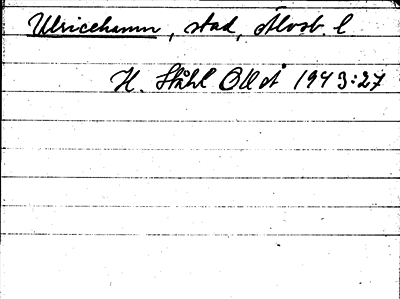 Ulricehamn, stad, Älvsb. l
H. Ståhl OUÅ 1943:27